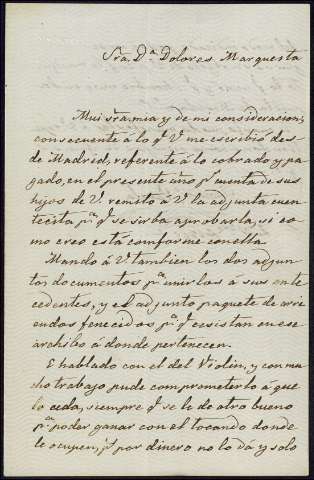 Sra. Dª Dolores Marquesta
Mui sra. mia y de mi consideracion;
consecuente á lo q.e V. me escribió des
de Madrid, referente á lo cobrado y pa
gado, en el presente año p.r cuenta de sus
hijos de V. remito á V. la adjunta cuen
tecita p.a q.e se sirba aprobarla, si co
mo creo está conforme con ella.
Mando á V. tambien los dos adjun
tos documentos p.a unirlos á sus ante
cedentes, y el adjunto paquete de arri
endos fenecidos p.a q.e ecsistan en ese
archibo á donde pertenecen.
E hablado con el del Violin, y con mu
cho trabajo pude comprometerlo á que
lo ceda, siempre q.e se le dé otro bueno
p.a poder ganar con el tocando donde
le ocupen, p.s por dinero no lo da y solo